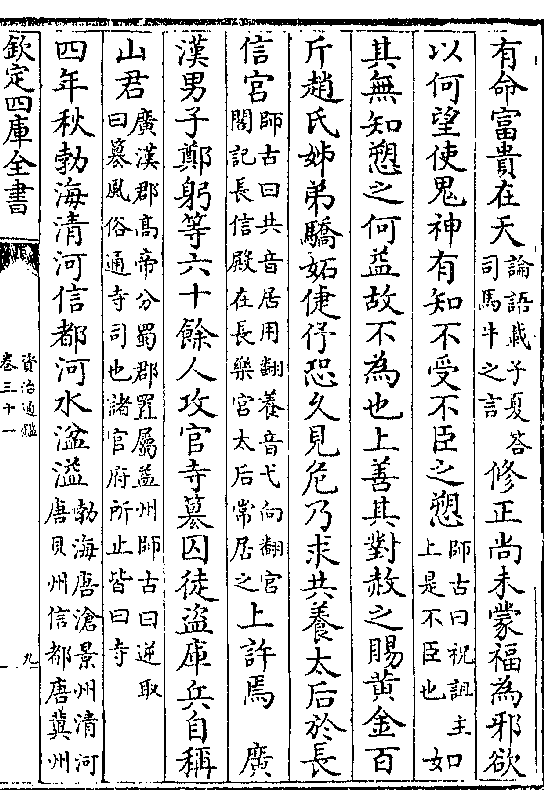 有命富貴在天論語載子夏答司馬牛之言修正尚未蒙福為邪欲
以何望使鬼神有知不受不臣之愬師古曰祝詛主上是不臣也如
其無知愬之何益故不為也上善其對赦之賜黃金百
斤趙氏姊弟驕妬倢伃恐久見危乃求共養太后於長
信宮師古曰共音居用翻養音弋向翻宮閣記長信殿在長樂宮太后常居之上許焉 廣
漢男子鄭躬等六十餘人攻官寺篡囚徒盜庫兵自稱
山君廣漢郡高帝分蜀郡置屬益州師古曰逆取曰篡風俗通寺司也諸官府所止皆曰寺
四年秋勃海清河信都河水湓溢勃海唐滄景州清河唐貝州信都唐冀州
欽定四庫全書
資治通鑑
卷三十一
九